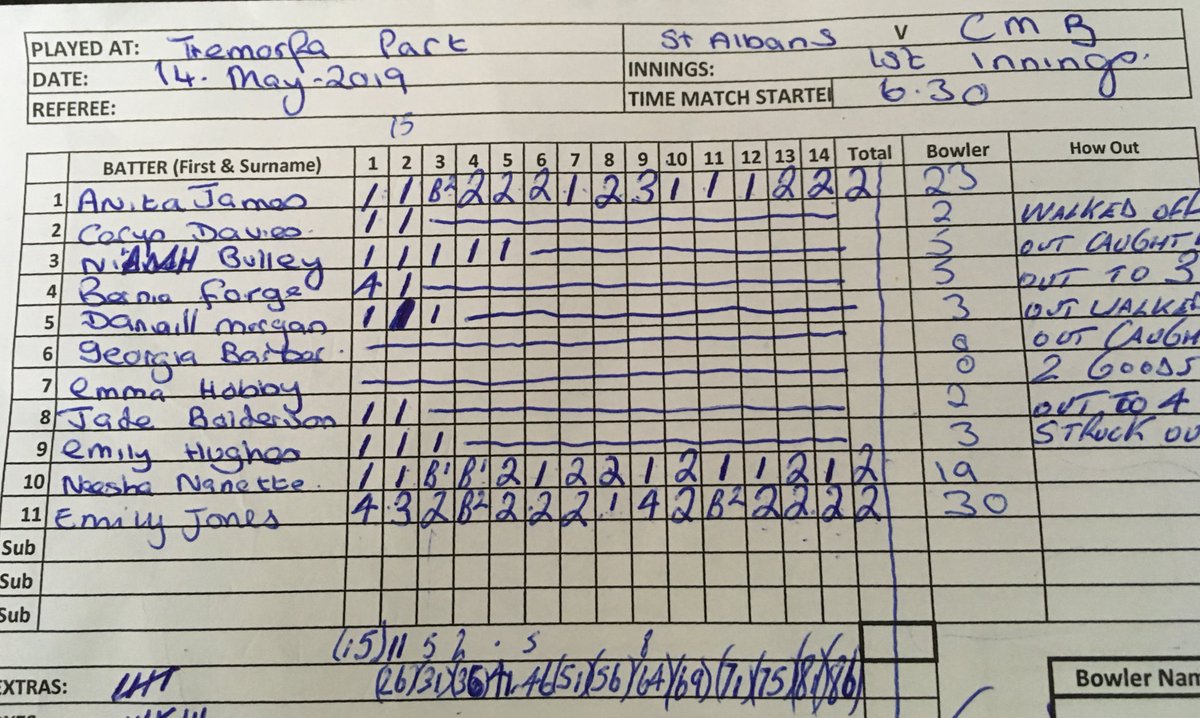 PLAYED AT: Tremorfa Park St Albans V CMB
DATE: 14. May-2019 INNINGS: 1st Innings.
REFEREE: TIME MATCH STARTE 6.30
15
BATTER (First & Surname) 1 2 3 4 5 6 7 8 9 10 11 12 13 14 Total Bowler How Out
1 Anita James 1 1 B2 2 2 2 1 2 3 1 1 1 2 2 2 23
2 Caryn Davies. 1 1 2 WALKED OFF
3 NiAMH Bulley 1 1 1 1 1 5 OUT CAUGHT
4 Forge 4 1 5 OUT TO 3
5 Morgan 1 1 3 OUT WALKED
6 Georgia Barber. 0 OUT CAUGH
7 emma Habby 0 2 GOODS
8 Jade Balderson 1 1 2 OUT TO 4
9 emily Hughes 1 1 1 3 STRUCK OU
10 Neesha Nanette. 1 1 B1 B1 2 1 2 2 1 2 1 1 2 1 2 19
11 Emily Jones 4 3 2 B2 2 2 2 1 4 2 B2 2 2 2 2 30
Sub
Sub
Sub
(15) 11 5 2 . 5 8
EXTRAS: (26)(31)(36) 41. 46)(51)(56)(64)(69)(71)(75)(81)(86)
Bowler Nam